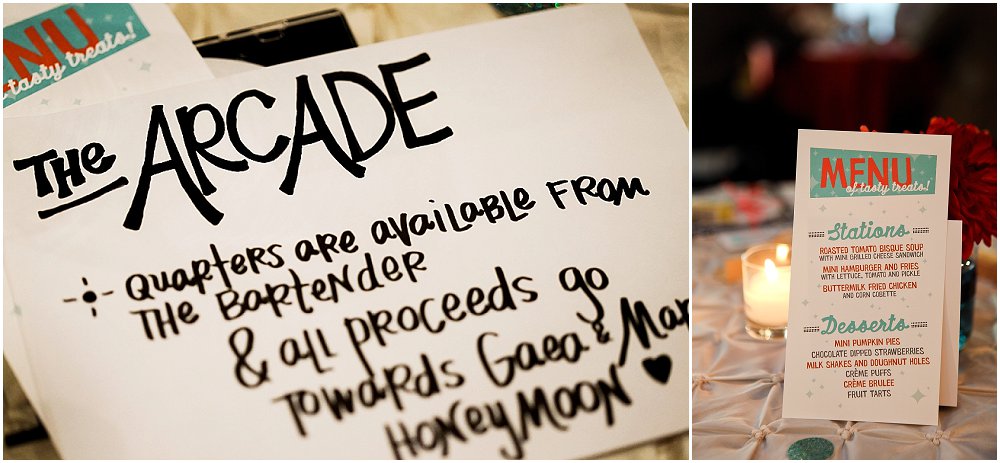 NU
of tasty treats!
THE ARCADE
QUARTERS ARE AVAILABLE FROM
THE BARTENDER
& ALL PROCEEDS GO
TOWARDS GAEA &
HONEYMOON
MENU
of tasty treats!
Stations
ROASTED TOMATO BISQUE SOUP
WITH MINI GRILLED CHEESE SANDWICH
MINI HAMBURGER AND FRIES
WITH LETTUCE, TOMATO AND PICKLE
BUTTERMILK FRIED CHICKEN
AND CORN COBETTE
Desserts
MINI PUMPKIN PIES
CHOCOLATE DIPPED STRAWBERRIES
MILK SHAKES AND DOUGHNUT HOLES
CRÈME PUFFS
CRÈME BRULEE
FRUIT TARTS